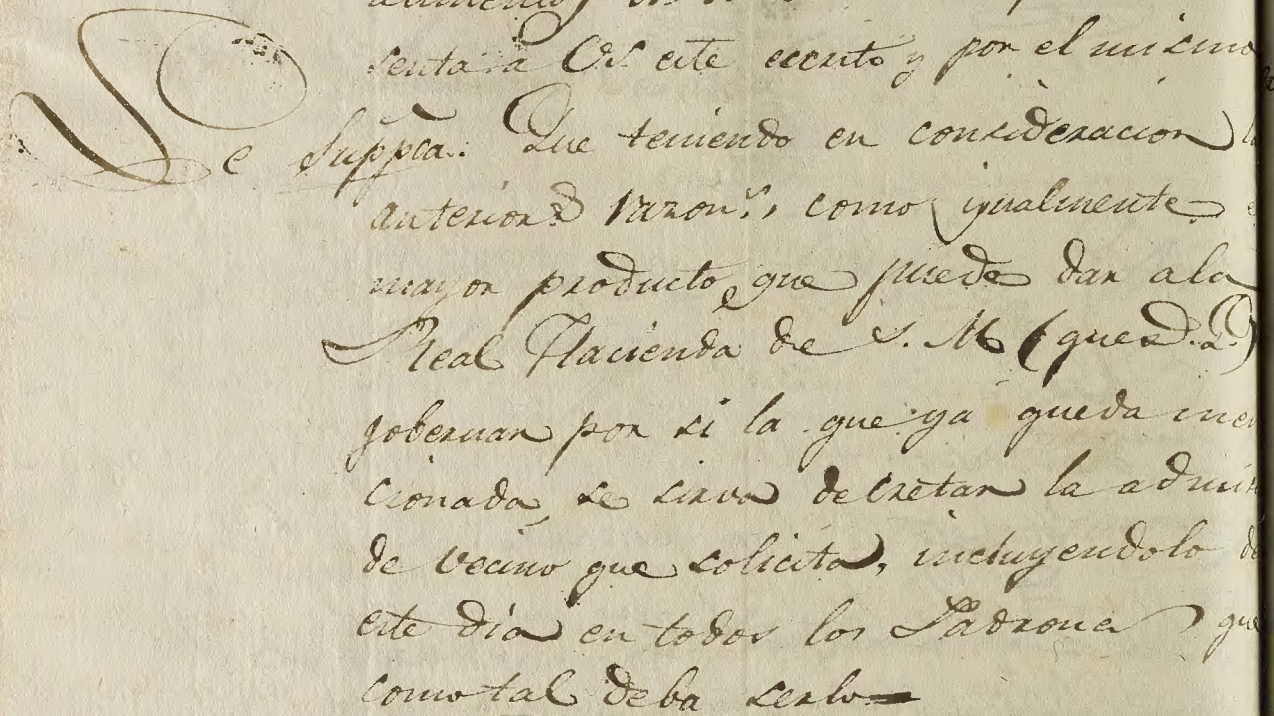 sentara Vd. este escrito y por el mismo
Se Suppca.: Que teniendo en consideracion
anterior.s razon.s, como igualmente
mayor producto, que puede dar ala
Real Hacienda de S. M (que
gobernar por si la que ya queda men
cionada, se sirva decretar la admis
de vecino que solicita, incluyendolo de
este dia en todos los Padrones que
como tal deba serlo=